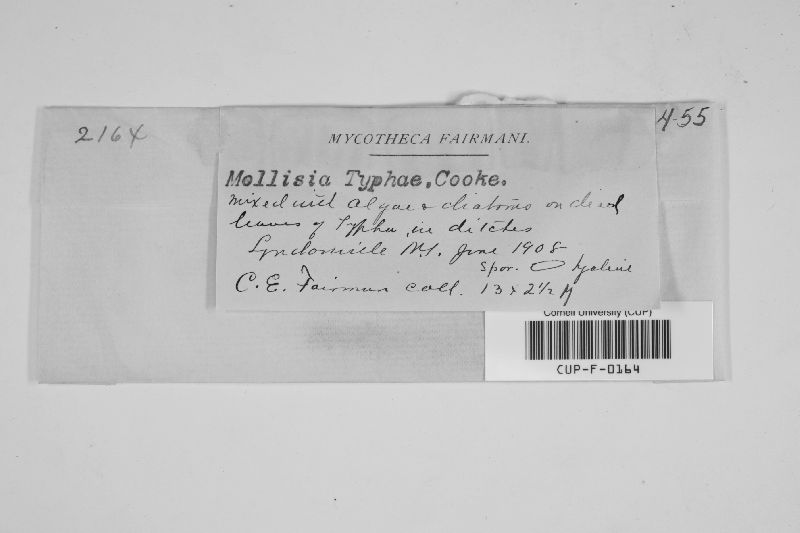 2164
4-55
MYCOTHECA FAIRMANI.
Mollisia Typhae, Cooke.
mixed with algae & diatoms on dead
leaves of Typha, in ditches
Lyndonville N.Y. June 1908
spor. hyaline
C. E. Fairman coll. 13 x 2½ µ
Cornell University (CUP)
CUP-F-0164